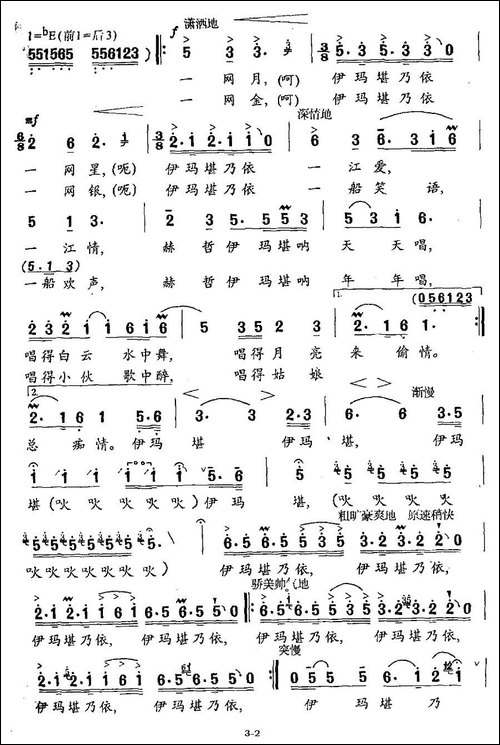 潇洒地
1=bE(前1=后3) f
551565 556123
5 3 3. 3 3/8 5.3 5.3 3 0
一 网 月,(呵) 伊玛堪乃依
一 网 金,(呵) 伊玛堪乃依
mf 深情地
6/8 2 6 2. 3/8 2.1 2.1 1 0 6 3 3 1 6
一 网 星,(呃) 伊玛堪乃依 一 江 爱,
一 网 银,(呃) 伊玛堪乃依 一 船 笑 语,
5 1 3. 2 3 5. 5 5 3 5 3 1 6.
一 江 情, 赫 哲 伊 玛 堪 呐 天 天 唱,
(5. 1 3)
一 船 欢 声, 赫 哲 伊 玛 堪 呐 年 年 唱,
1. (056123
2 3 2 1 1 6 1 6 5 3 5 2 3 2. 1 6 1.
唱得白云 水中舞, 唱得月 亮 来 偷 情。
唱得小伙 歌中醉, 唱得姑 娘
2. 渐慢
2. 1 6 1 5.6 3. 3. 2.3 6. 6. 3.5
总 痴 情。伊玛 堪 伊玛 堪, 伊玛
1 1 1 1 1 1 5.6 5 5 5 5 5
堪 (吙 吙 吙 吙 吙) 伊玛 堪, (吙 吙 吙 吙
粗旷豪爽地 原速稍快
5 5 5 5 5 5 5. 6.5 6.5 5 3 5 3.2 3.2 2 0
吙 吙 吙 吙 吙 吙) 伊玛堪乃依, 伊玛堪乃依,
骄美帅气地
2.1 2.1 1 6 1 6.5 6.5 5 0 6.5 6.5 5 3 5 3.2 3.2 2 0
伊玛堪乃依, 伊玛堪乃依, 伊玛堪乃依, 伊玛堪乃依,
突慢
2.1 2.1 1 6 1 6.5 6.5 5 0 5 6 1 2. 2 1
伊玛堪乃依, 伊玛堪乃依, 伊 玛 堪 乃
3-2